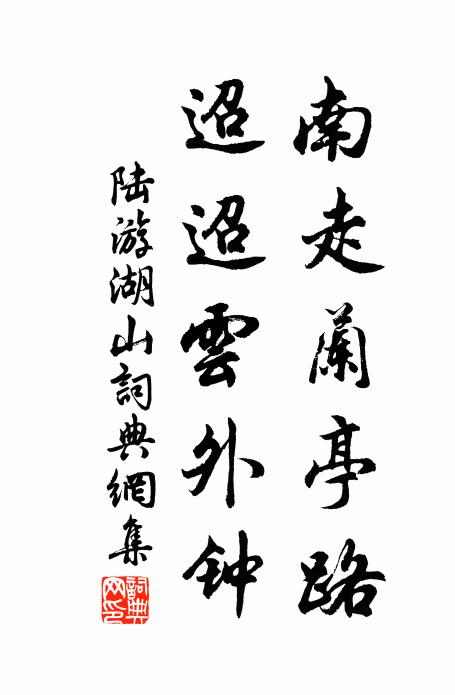 南走蘭亭路
迢迢雲外钟
陆游湖山詞典網集
詞典网印